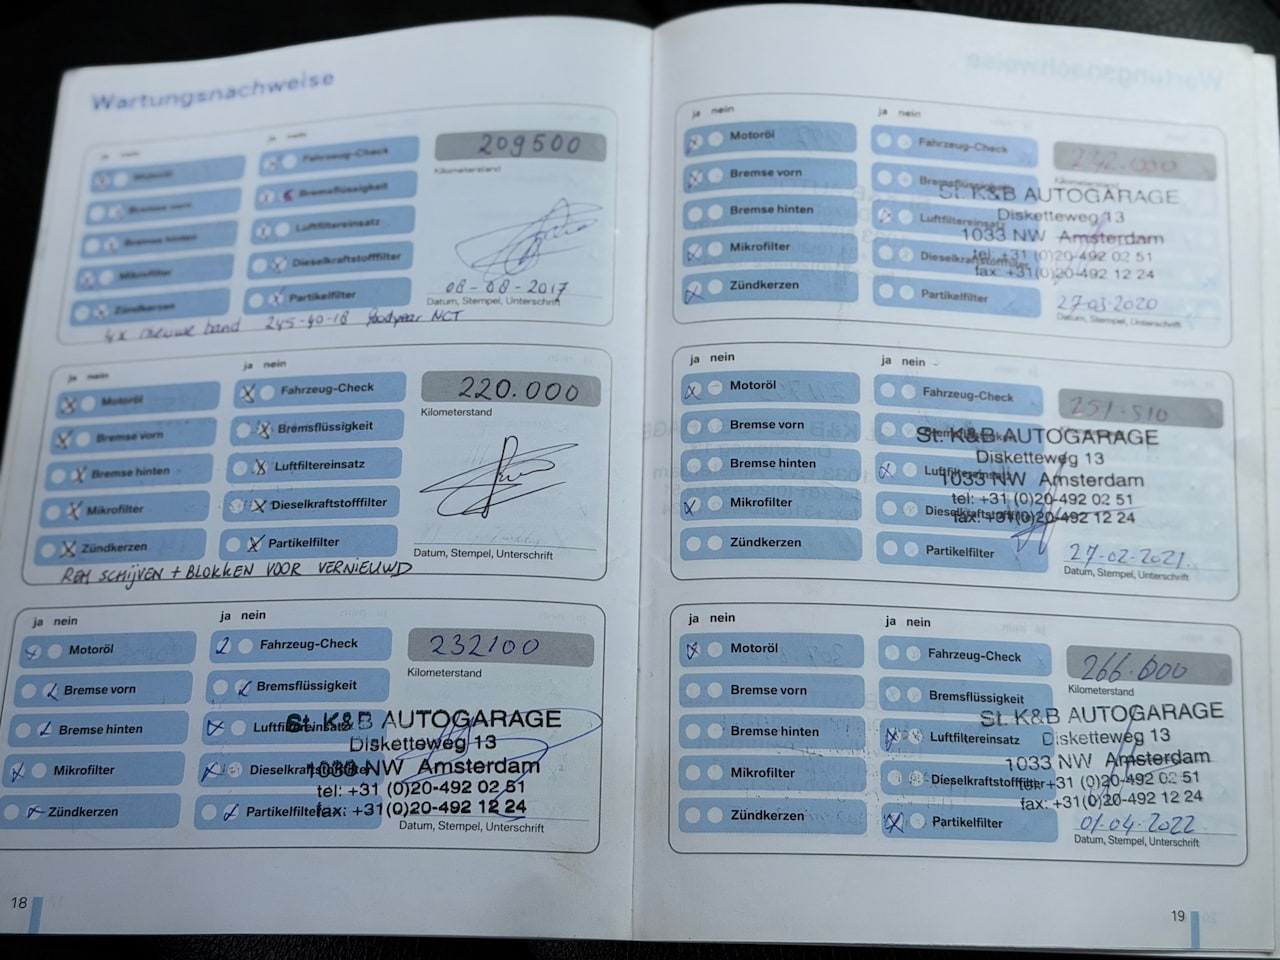 Wartungsnachweise
ja nein
ja nein
Motoröl
Bremse vorn
Bremse hinten
Mikrofilter
Zündkerzen
Fahrzeug-Check
Bremsflüssigkeit
Luftfiltereinsatz
Dieselkraftstofffilter
Partikelfilter
209500
Kilometerstand
08-08-2017
Datum, Stempel, Unterschrift
4x nieuwe band 245-40-18 Goodyear NCT
ja nein
ja nein
Motoröl
Bremse vorn
Bremse hinten
Mikrofilter
Zündkerzen
Fahrzeug-Check
Bremsflüssigkeit
Luftfiltereinsatz
Dieselkraftstofffilter
Partikelfilter
220.000
Kilometerstand
Datum, Stempel, Unterschrift
REM SCHIJVEN + BLOKKEN VOOR VERNIEUWD
ja nein
ja nein
Motoröl
Bremse vorn
Bremse hinten
Mikrofilter
Zündkerzen
Fahrzeug-Check
Bremsflüssigkeit
Luftfiltereinsatz
Dieselkraftstofffilter
Partikelfilter
232100
Kilometerstand
St. K&B AUTOGARAGE
Disketteweg 13
1033 NW Amsterdam
tel: +31 (0)20-492 02 51
fax: +31(0)20-492 12 24
Datum, Stempel, Unterschrift
18
ja nein
ja nein
Motoröl
Bremse vorn
Bremse hinten
Mikrofilter
Zündkerzen
Fahrzeug-Check
Bremsflüssigkeit
Luftfiltereinsatz
Dieselkraftstofffilter
Partikelfilter
242.000
Kilometerstand
St. K&B AUTOGARAGE
Disketteweg 13
1033 NW Amsterdam
tel: +31 (0)20-492 02 51
fax: +31(0)20-492 12 24
27-03-2020
Datum, Stempel, Unterschrift
ja nein
ja nein
Motoröl
Bremse vorn
Bremse hinten
Mikrofilter
Zündkerzen
Fahrzeug-Check
Luftfiltereinsatz
Dieselkraftstofffilter
Partikelfilter
251.510
St. K&B AUTOGARAGE
Disketteweg 13
1033 NW Amsterdam
tel: +31 (0)20-492 02 51
fax: +31(0)20-492 12 24
27-02-2021
Datum, Stempel, Unterschrift
ja nein
ja nein
Motoröl
Bremse vorn
Bremse hinten
Mikrofilter
Zündkerzen
Fahrzeug-Check
Bremsflüssigkeit
Luftfiltereinsatz
Dieselkraftstofffilter
Partikelfilter
266.000
Kilometerstand
St. K&B AUTOGARAGE
Disketteweg 13
1033 NW Amsterdam
tel: +31 (0)20-492 02 51
fax: +31(0)20-492 12 24
01-04-2022
Datum, Stempel, Unterschrift
19